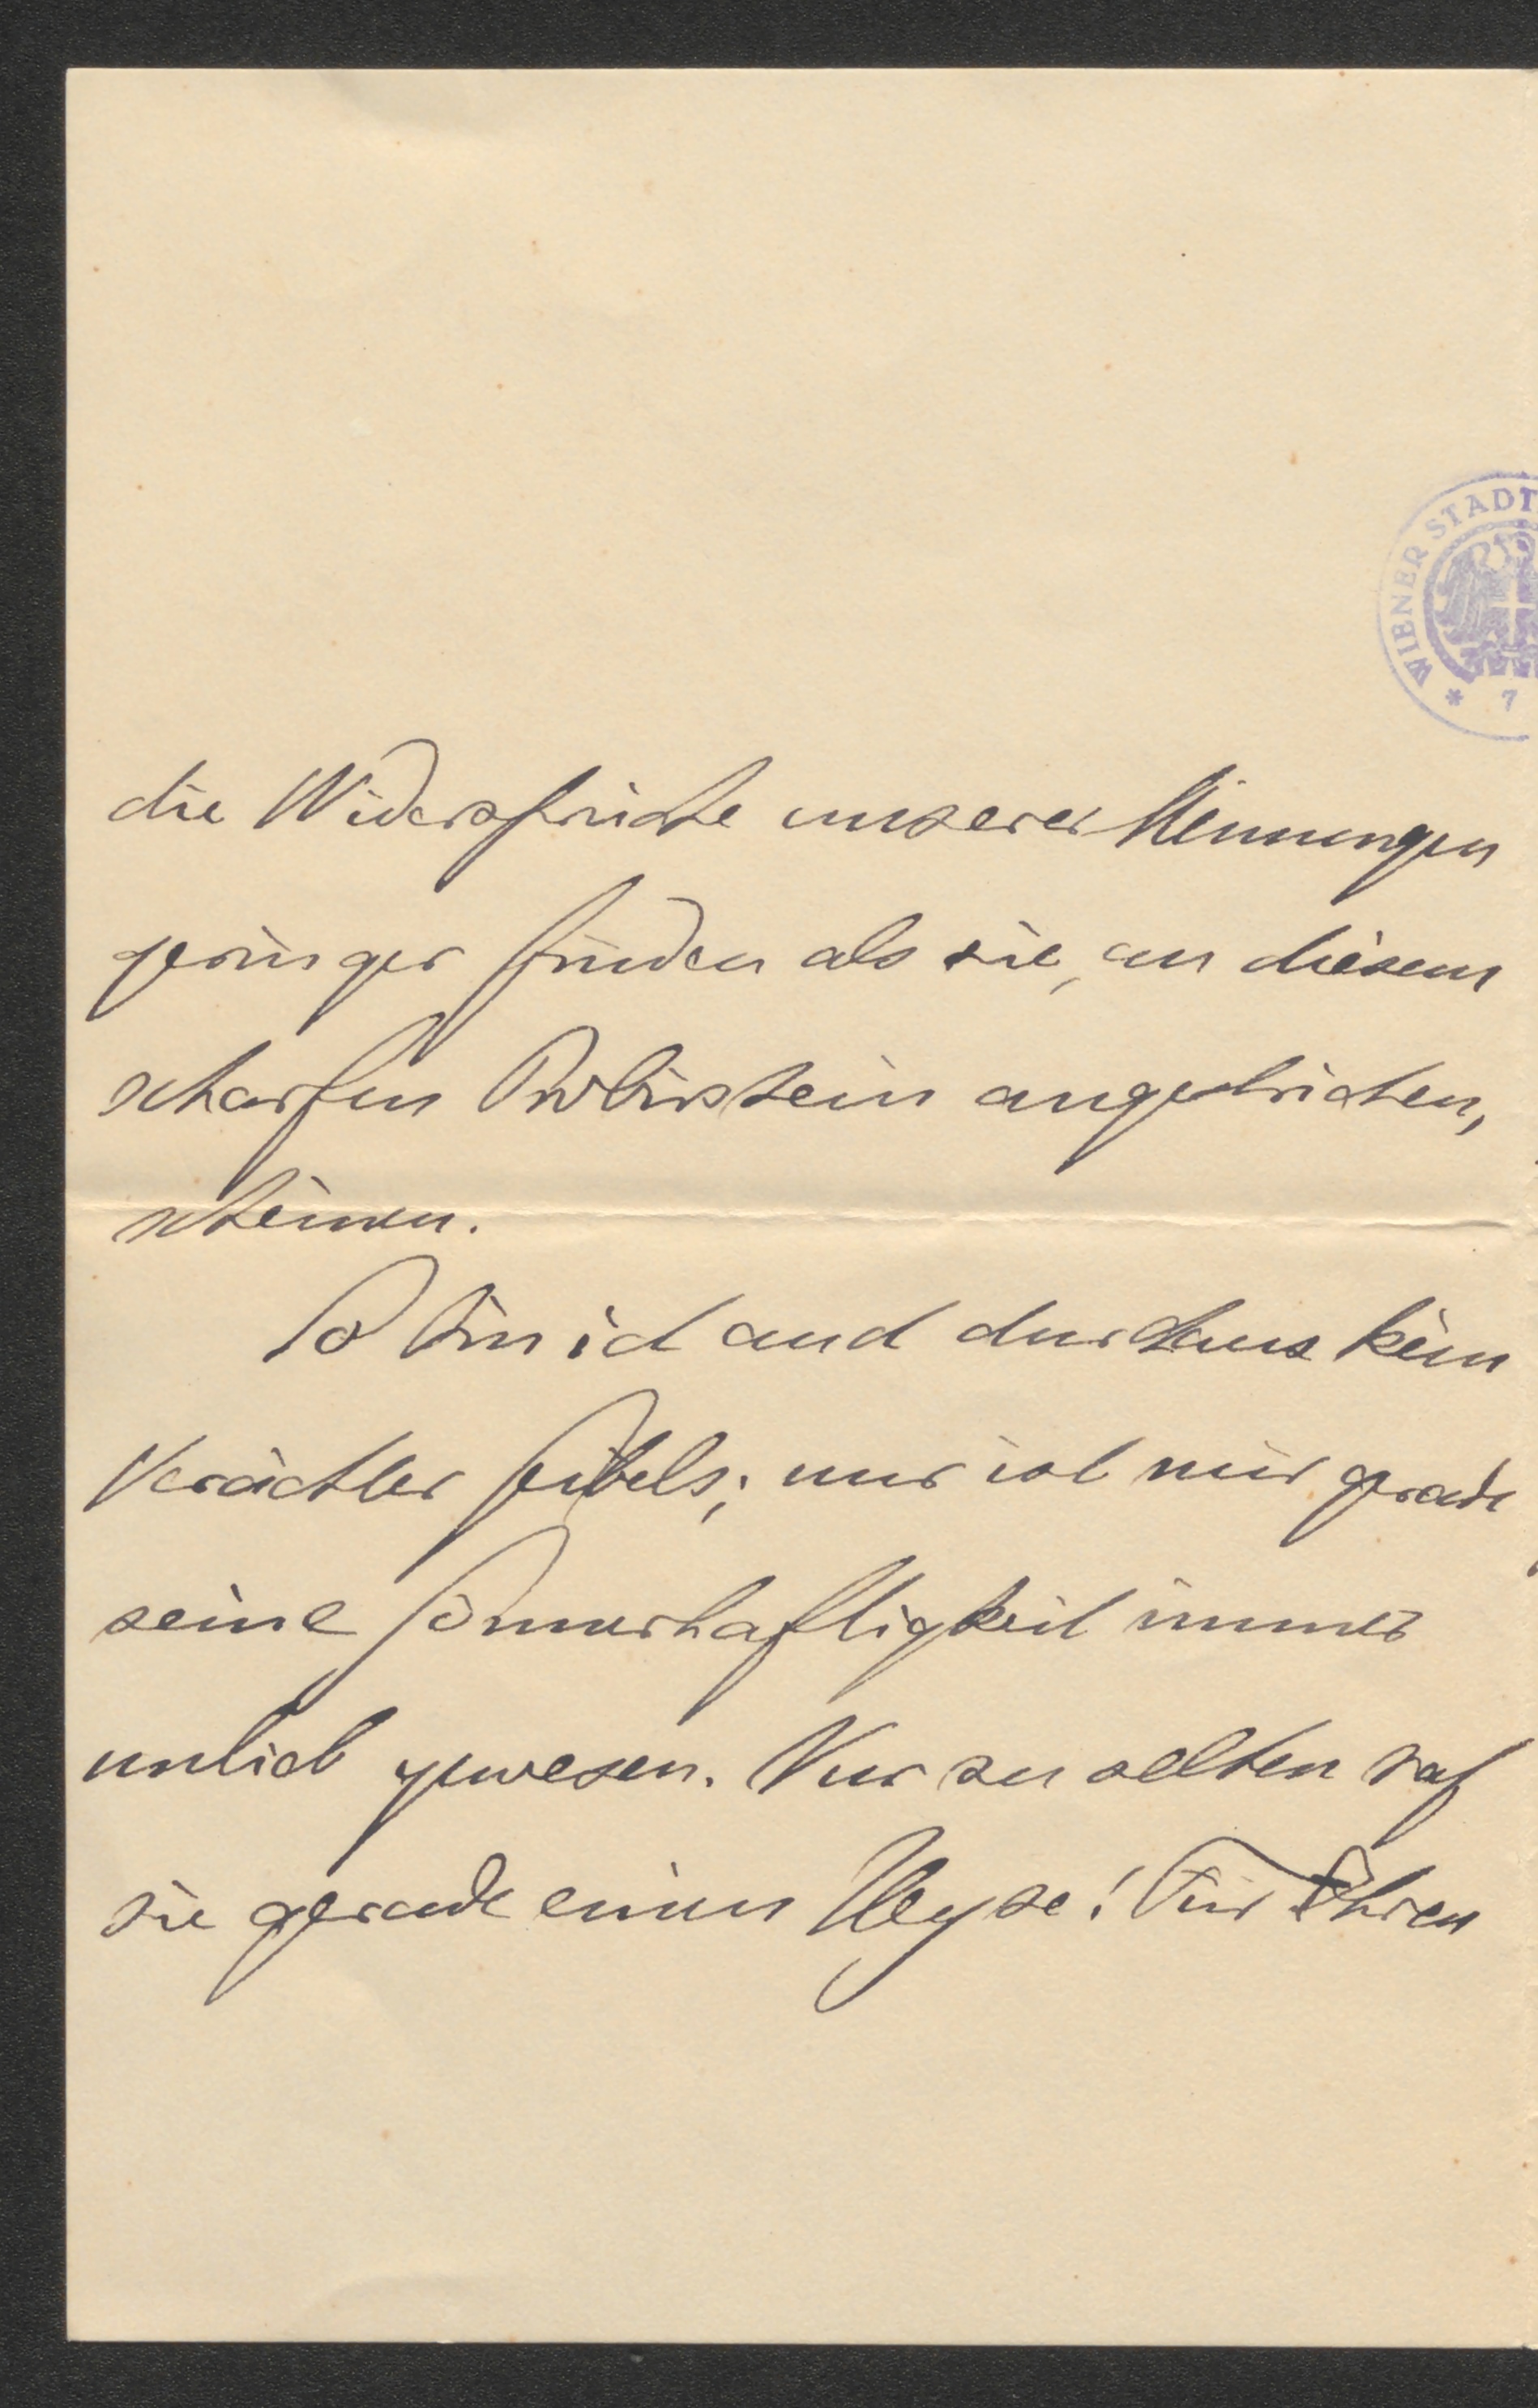 WIENER STADT
* 7
die Widersprüche unserer Meinungen
geringer finden als sie, an diesem
scharfen Probirstein angestrichen,
scheinen.
So bin ich auch durchaus kein
Verächter Geibels; nur ist mir gerade
seine Gönnerhaftigkeit immer
unlieb gewesen. Nur zu selten traf
sie gerade einen Heyse! Für Ihren